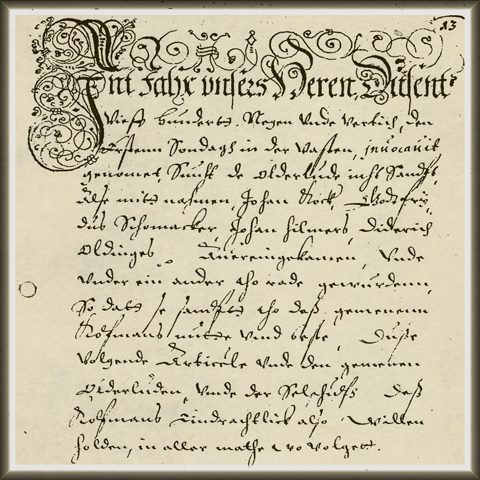 13
Im Jahr unsers Heren Dusent
Vieff hunderts Negen unde vertich, den
Ersten Sondagh in der Vasten, jnvocavit
genomet, Sindt de olderlude inst Sandt,
alse mit nahmen, Johan Kock, Godtfri¸
dus Schomacker, Johan Hilmers, Diderich
Oldinges Auereingekamen, Vnde
vnder ein ander tho rade gewurdenn,
So datt se sampt tho deß gemenenn
Kopmans nutte vnd beste, Dusse
volgende Articule vnde den gemenen
Olderluden, vnde der Selschufs Deß
Kopmans Eindrachtlick also Willen
holden, in aller mathe wo volget.